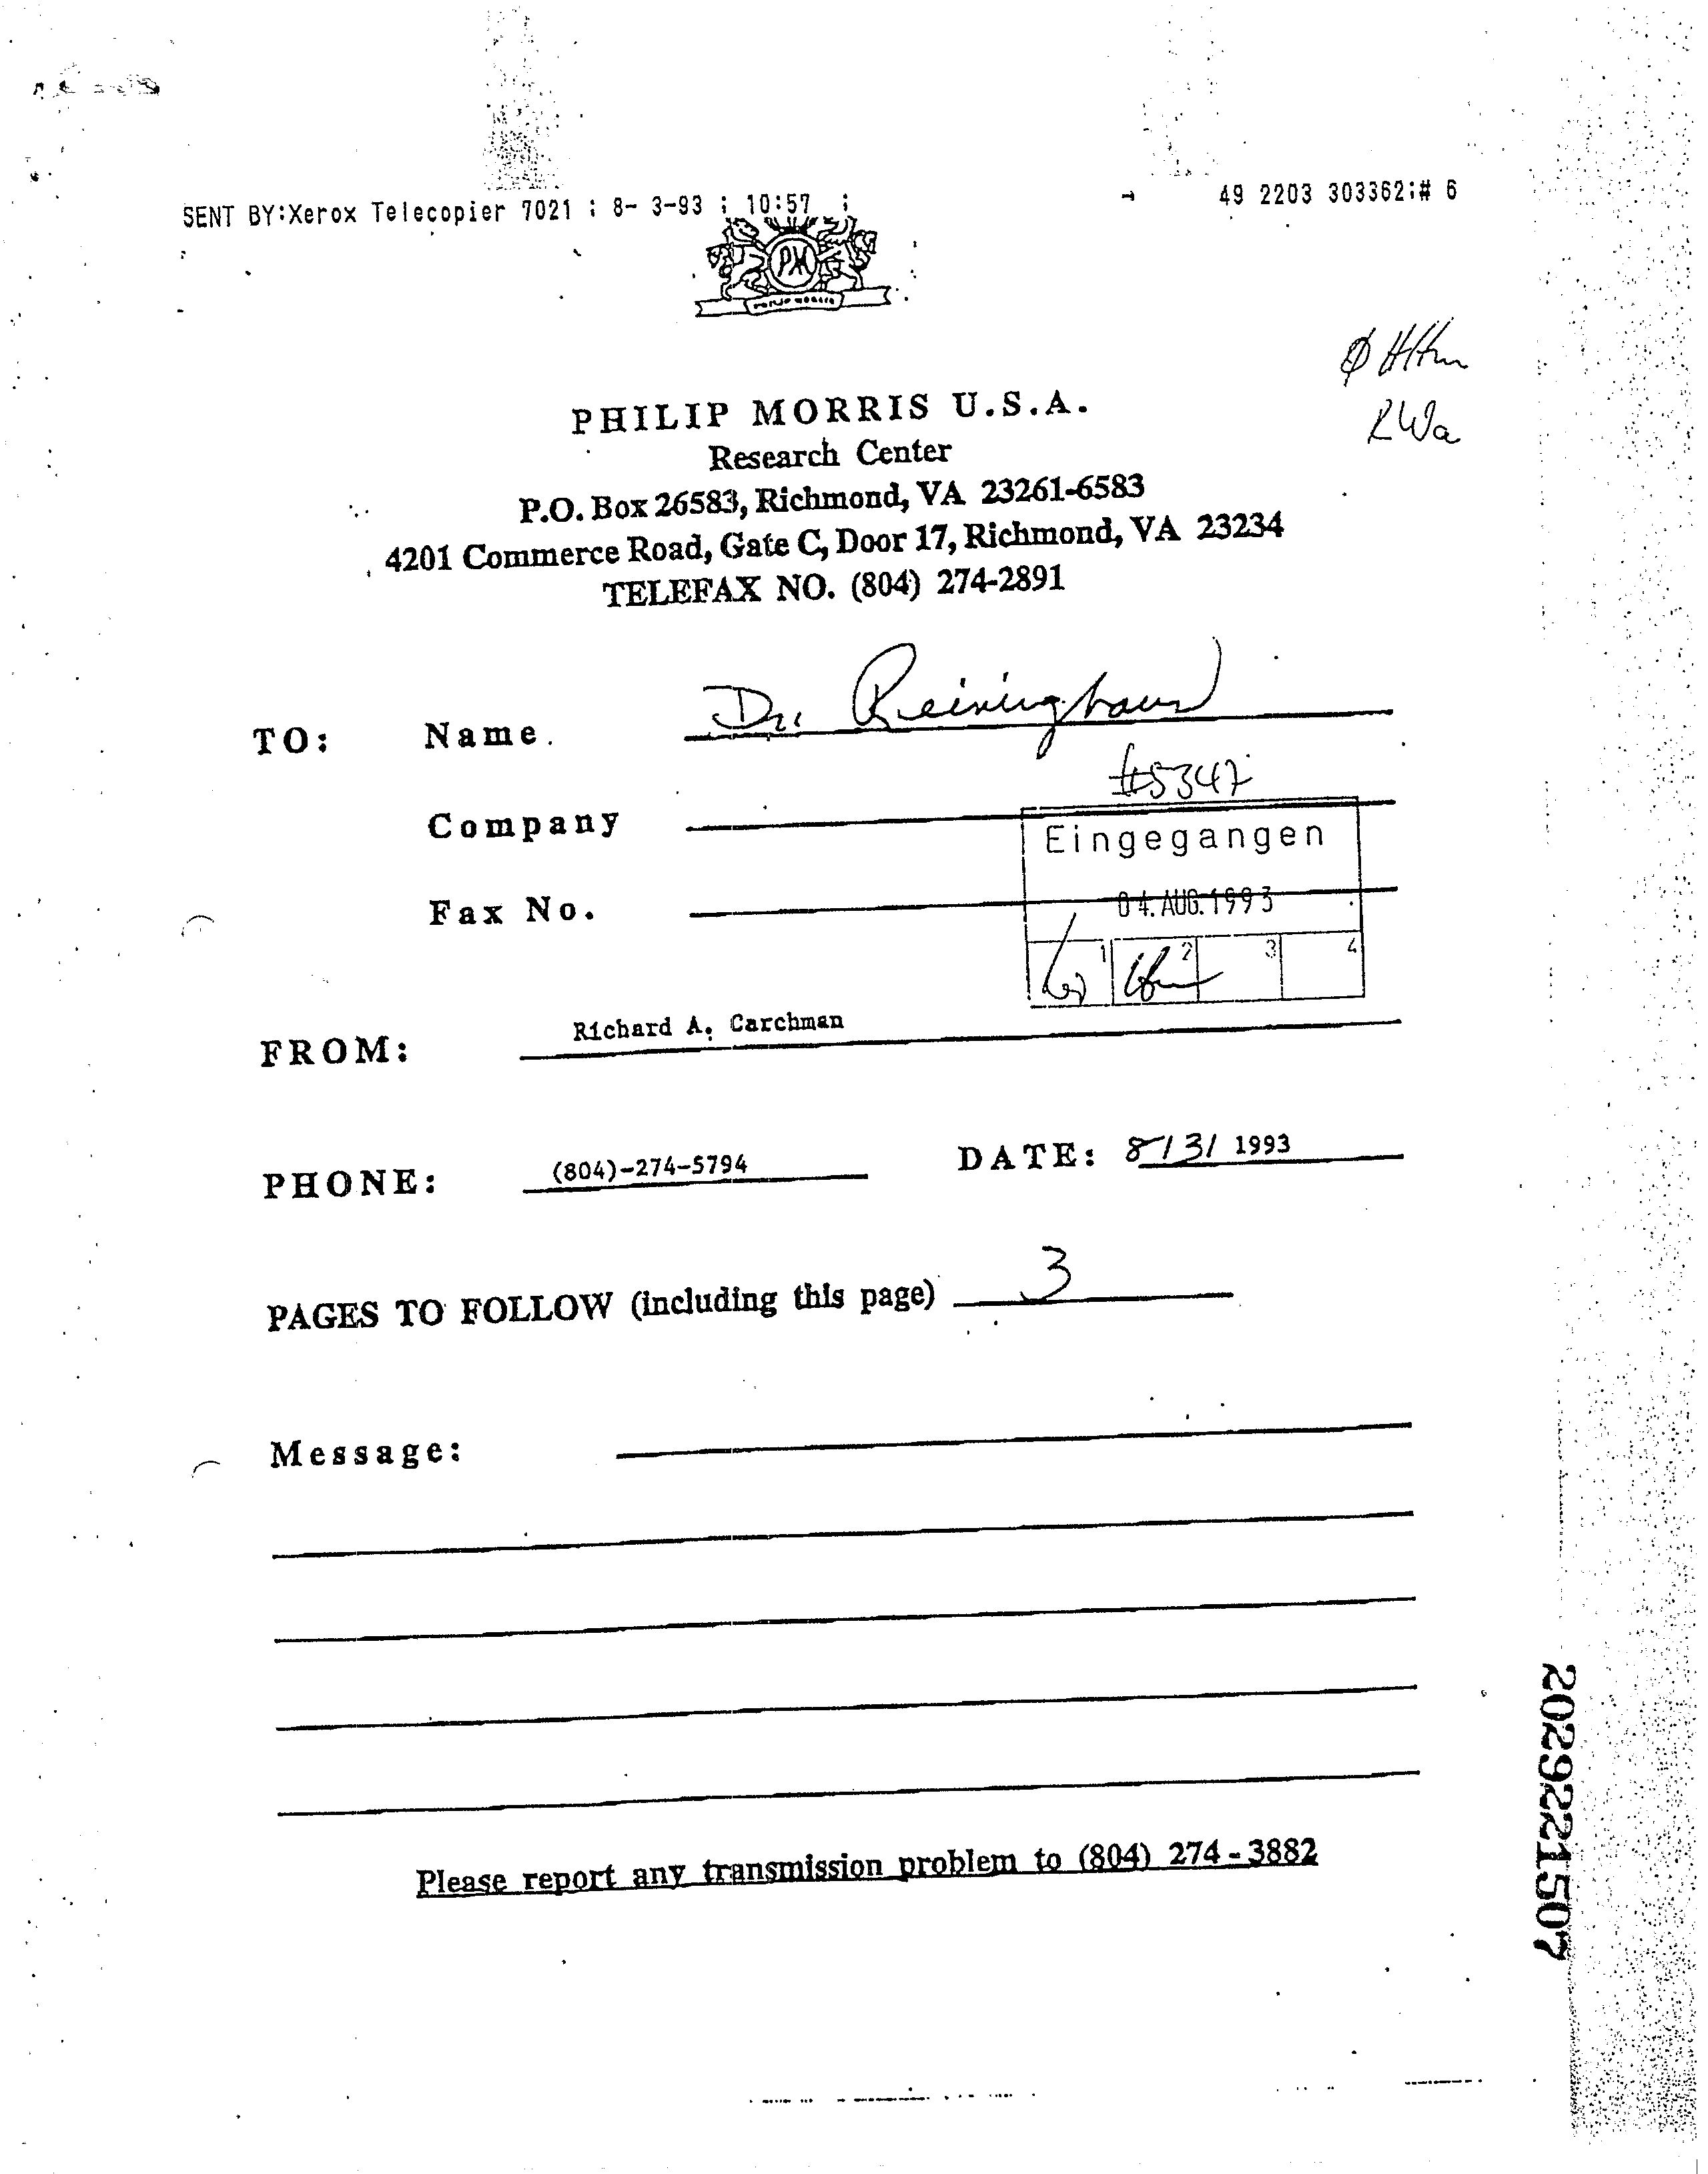 SENT BY:Xerox Telecopier 7021 ; 8- 3-93 ; 10:57 ; → 49 2203 303362;# 6
PM
PHILIP MORRIS
PHILIP MORRIS U.S.A.
Research Center
P.O. Box 26583, Richmond, VA 23261-6583
4201 Commerce Road, Gate C, Door 17, Richmond, VA 23234
TELEFAX NO. (804) 274-2891
RWa
TO: Name. Dr. Reininghaus
#5347
Company
Eingegangen
Fax No.
04. AUG. 1993
1 2 3 4
FROM: Richard A. Carchman
PHONE: (804)-274-5794 DATE: 8/3/ 1993
PAGES TO FOLLOW (including this page) 3
Message:
Please report any transmission problem to (804) 274-3882
2029221507